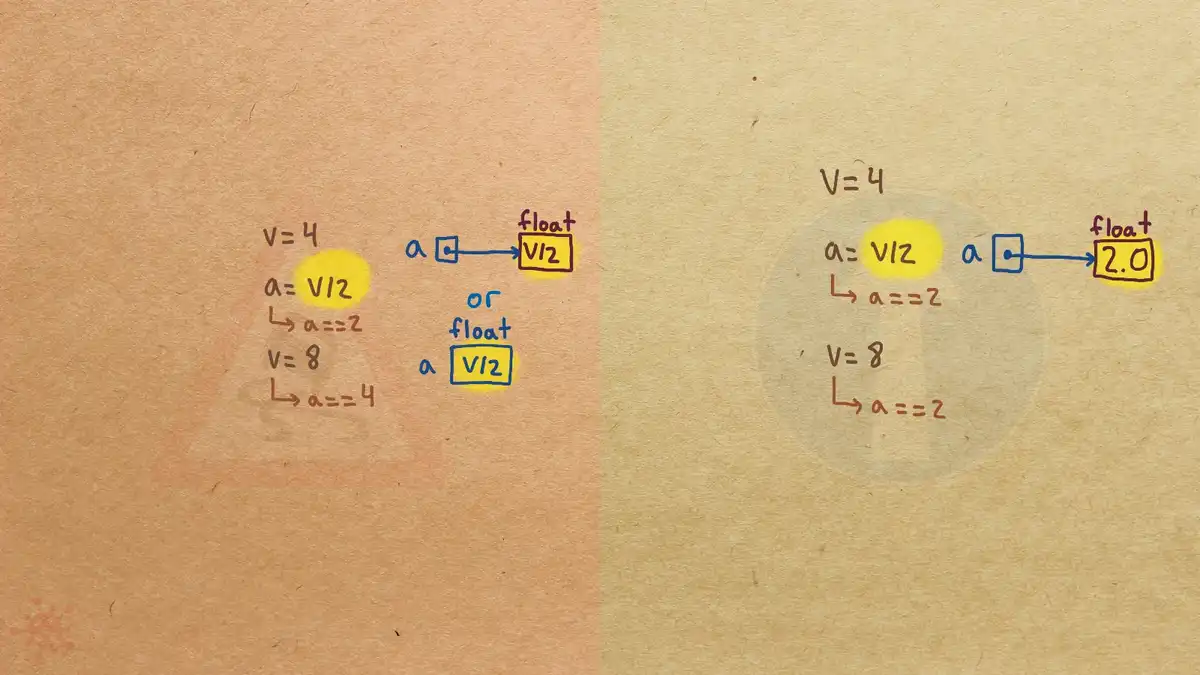 v=4
a= v/2
↳ a==2
v= 8
↳ a==4
float
a v/2
or
float
a v/2
V=4
a= v/2
↳ a==2
v= 8
↳ a==2
float
a 2.0